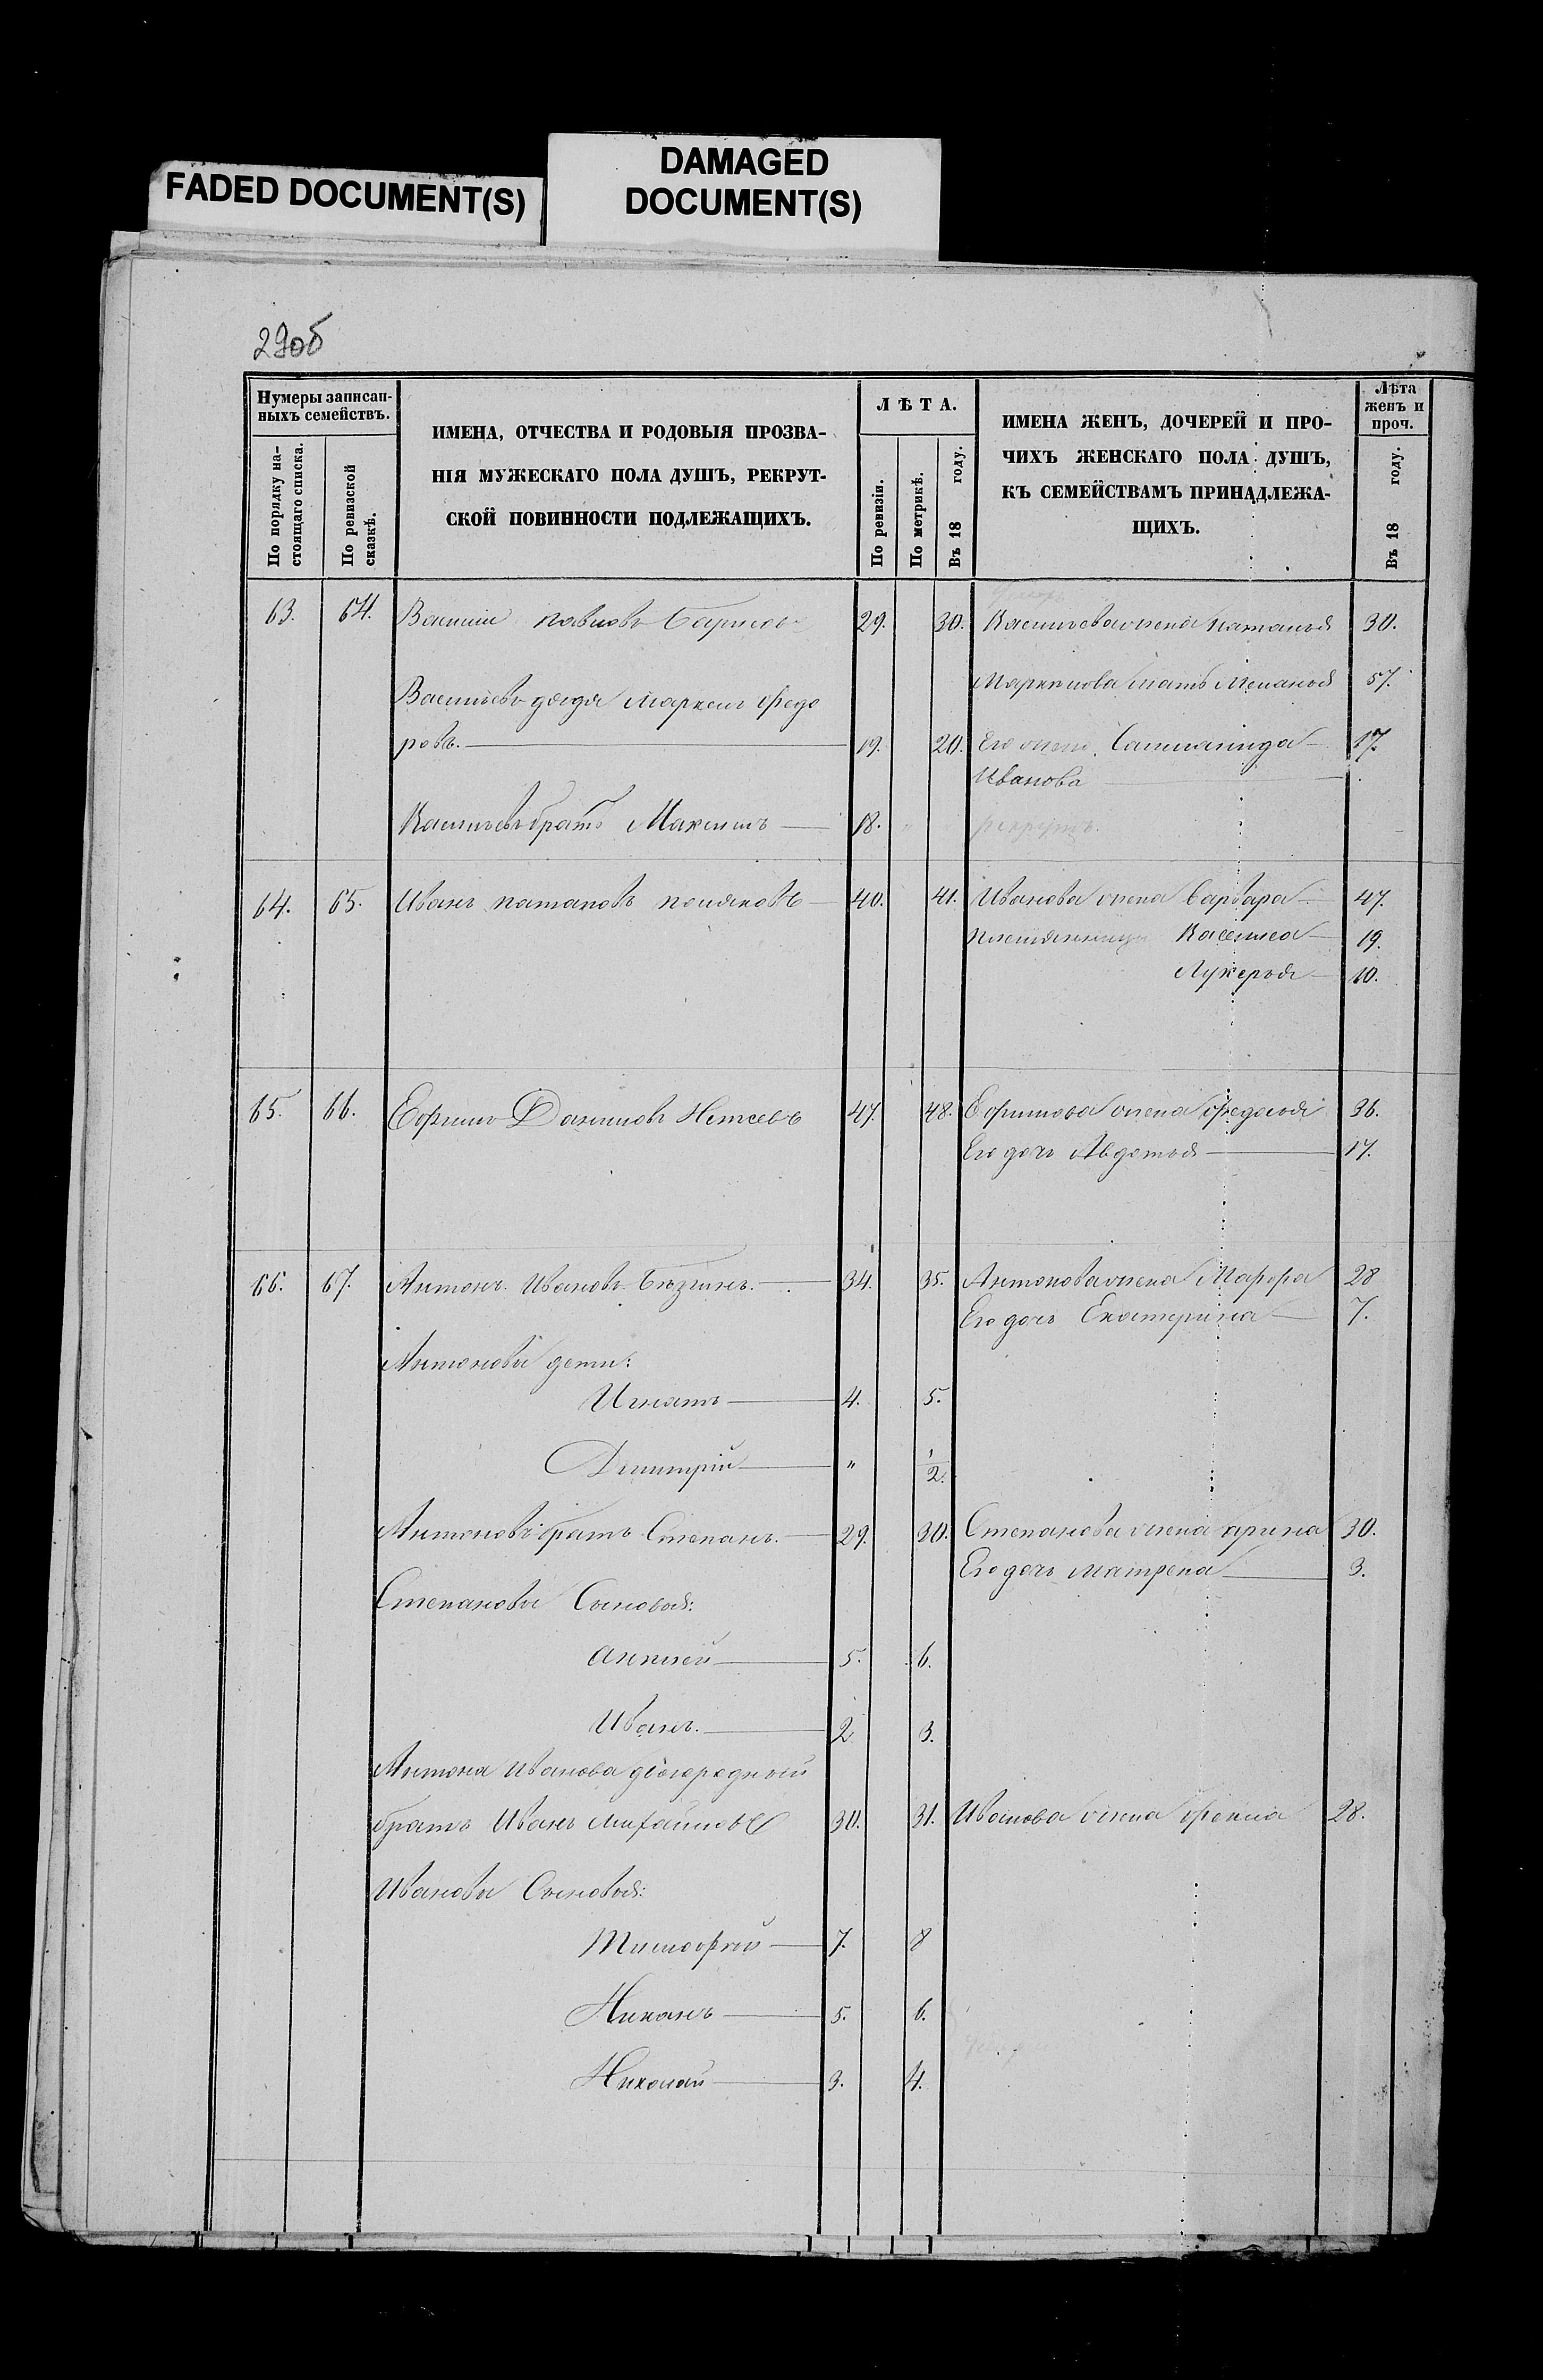 FADED DOCUMENT(S)
DAMAGED
DOCUMENT(S)
29об
Нумеры записан-
ныхъ семействъ.
По порядку на-
стоящаго списка.
По ревизской
сказкѣ.
ИМЕНА, ОТЧЕСТВА И РОДОВЫЯ ПРОЗВА-
НІЯ МУЖЕСКАГО ПОЛА ДУШЪ, РЕКРУТ-
СКОЙ ПОВИННОСТИ ПОДЛЕЖАЩИХЪ.
ЛѢТА.
По ревизіи.
По метрикѣ.
Въ 18 году.
ИМЕНА ЖЕНЪ, ДОЧЕРЕЙ И ПРО-
ЧИХЪ ЖЕНСКАГО ПОЛА ДУШЪ,
КЪ СЕМЕЙСТВАМЪ ПРИНАДЛЕЖА-
ЩИХЪ.
Лѣта
женъ и
проч.
Въ 18 году.
63. 64. Василій Павловъ 29. 30. Васильева жена Наталья 30.
Маркелова мать Меланья 57.
Васильевъ дядя Маркелъ Федо
ровъ. 19. 20. Его жена Саламанида 17.
Иванова
Васильевъ братъ Максимъ 18. " рекрутъ.
64. 65. Иванъ Потаповъ Поляковъ 40. 41. Иванова жена Варвара 47.
племянницы Васелиса 19.
Лукерья 10.
65. 66. Ефимъ Даниловъ 47. 48. Ефимова жена Федосья 36.
Его дочь Авдотья 17.
66. 67. Антонъ Ивановъ 34. 35. Антонова жена Марфа 28
Его дочь Екатерина 7.
Антоновы дети:
Игнатъ 4. 5.
Дмитрій " 1/2.
Антоновъ братъ Степанъ. 29. 30. Степанова жена арина 30.
Его дочь Матрена 3.
Степановы Сыновья:
5. 6.
Иванъ. 2 3.
Антона Иванова двоюродный
братъ Иванъ Михайловъ 30. 31. Иванова жена фекла 28.
Ивановы Сыновья:
Тимофей 7. 8
5. 6.
Николай 3. 4.